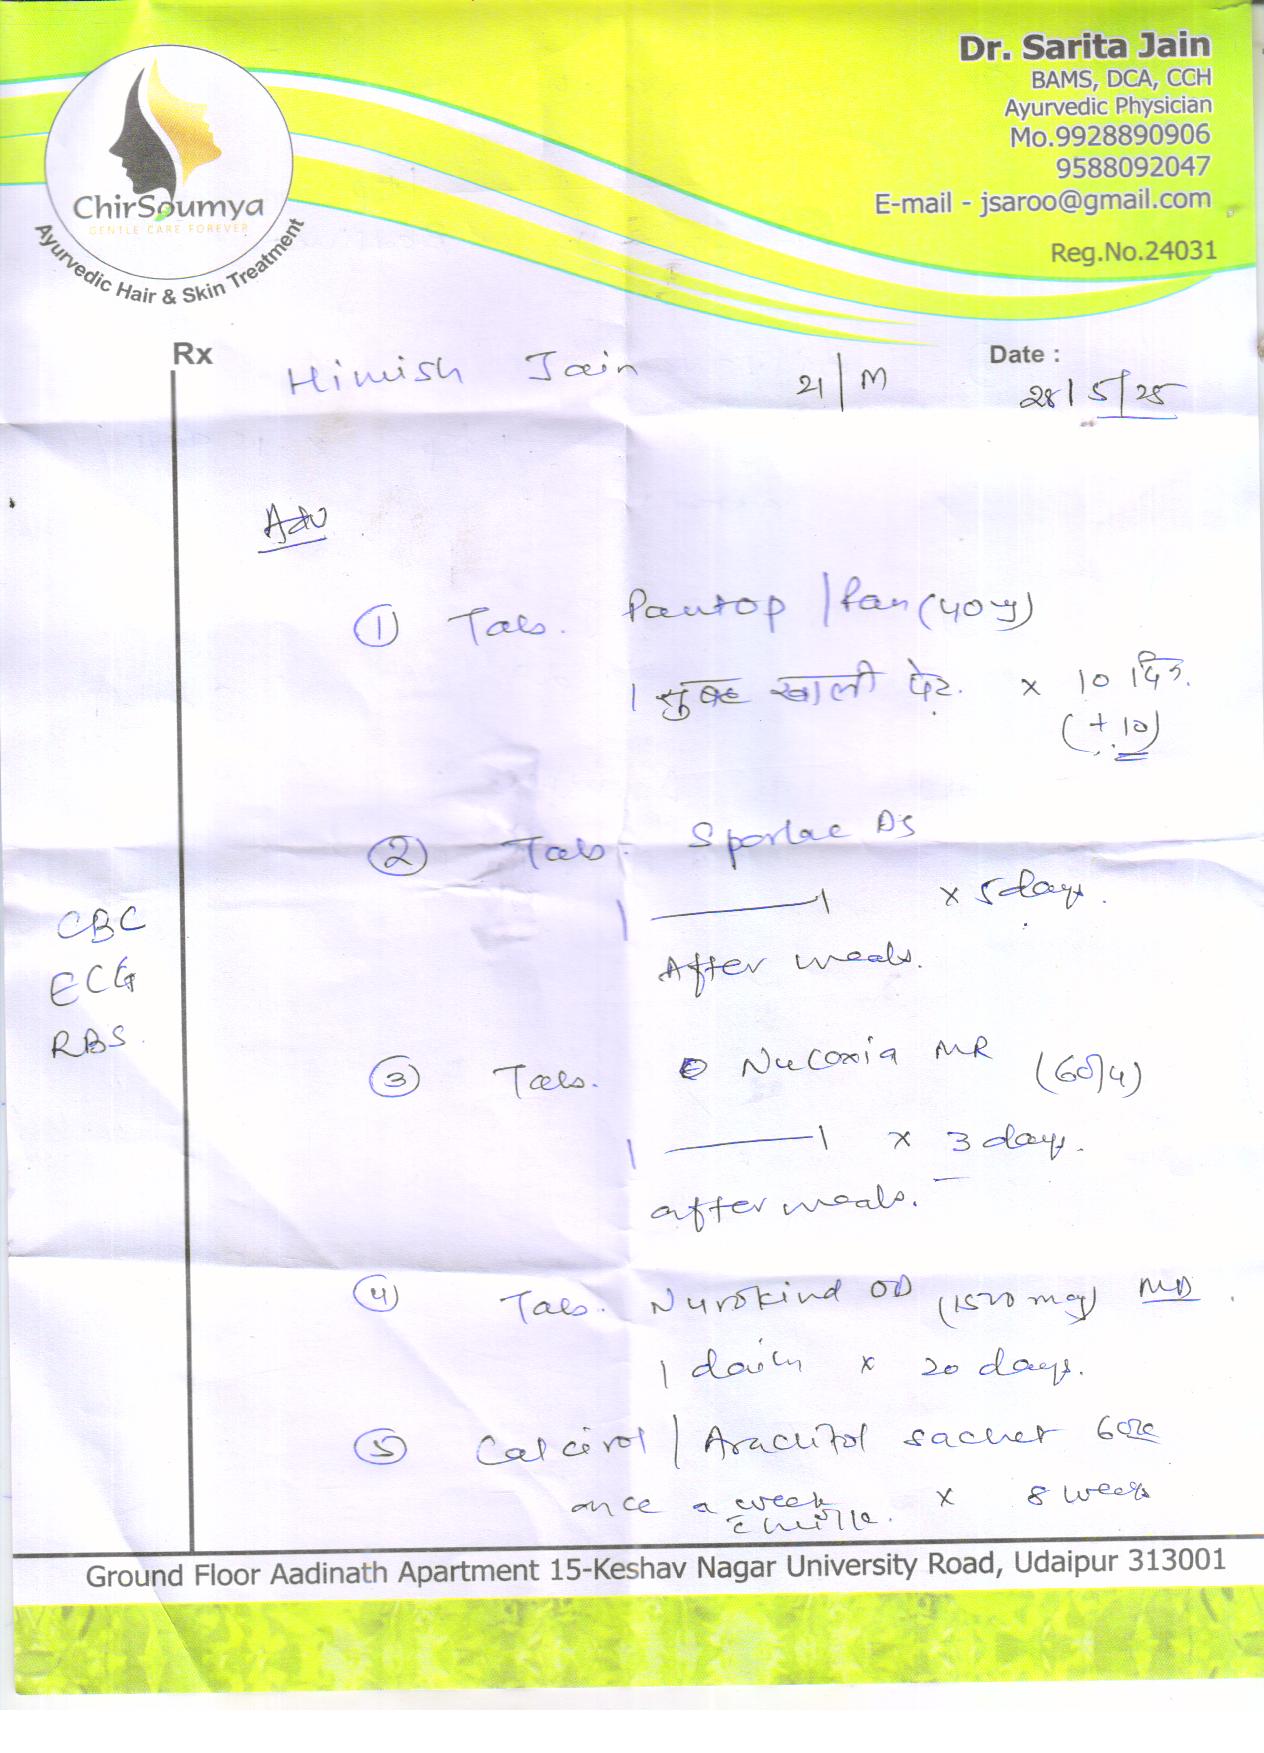 Dr. Sarita Jain
BAMS, DCA, CCH
Ayurvedic Physician
Mo.9928890906
9588092047
E-mail - jsaroo@gmail.com
Reg.No.24031
ChirSoumya
GENTLE CARE FOREVER
Ayurvedic Hair & Skin Treatment
Rx Himish Jain 21/M Date :
28/5/25
Adv
① Tab. Pantop / Pan (40mg)
1 सुबह खाली पेट. x 10 दिन.
(+10)
② Tab. Sporlac DS
1 ——— 1 x 5 days.
After meals.
CBC
ECG
RBS
③ Tab. Nucoxia MR (60/4)
1 ——— 1 x 3 days.
after meals.
④ Tab. Nurokind OD (1500 mcg) MD.
1 daily x 20 days.
⑤ Calcirol / Arachitol sachet 60K
once a week x 8 week
c milk.
Ground Floor Aadinath Apartment 15-Keshav Nagar University Road, Udaipur 313001